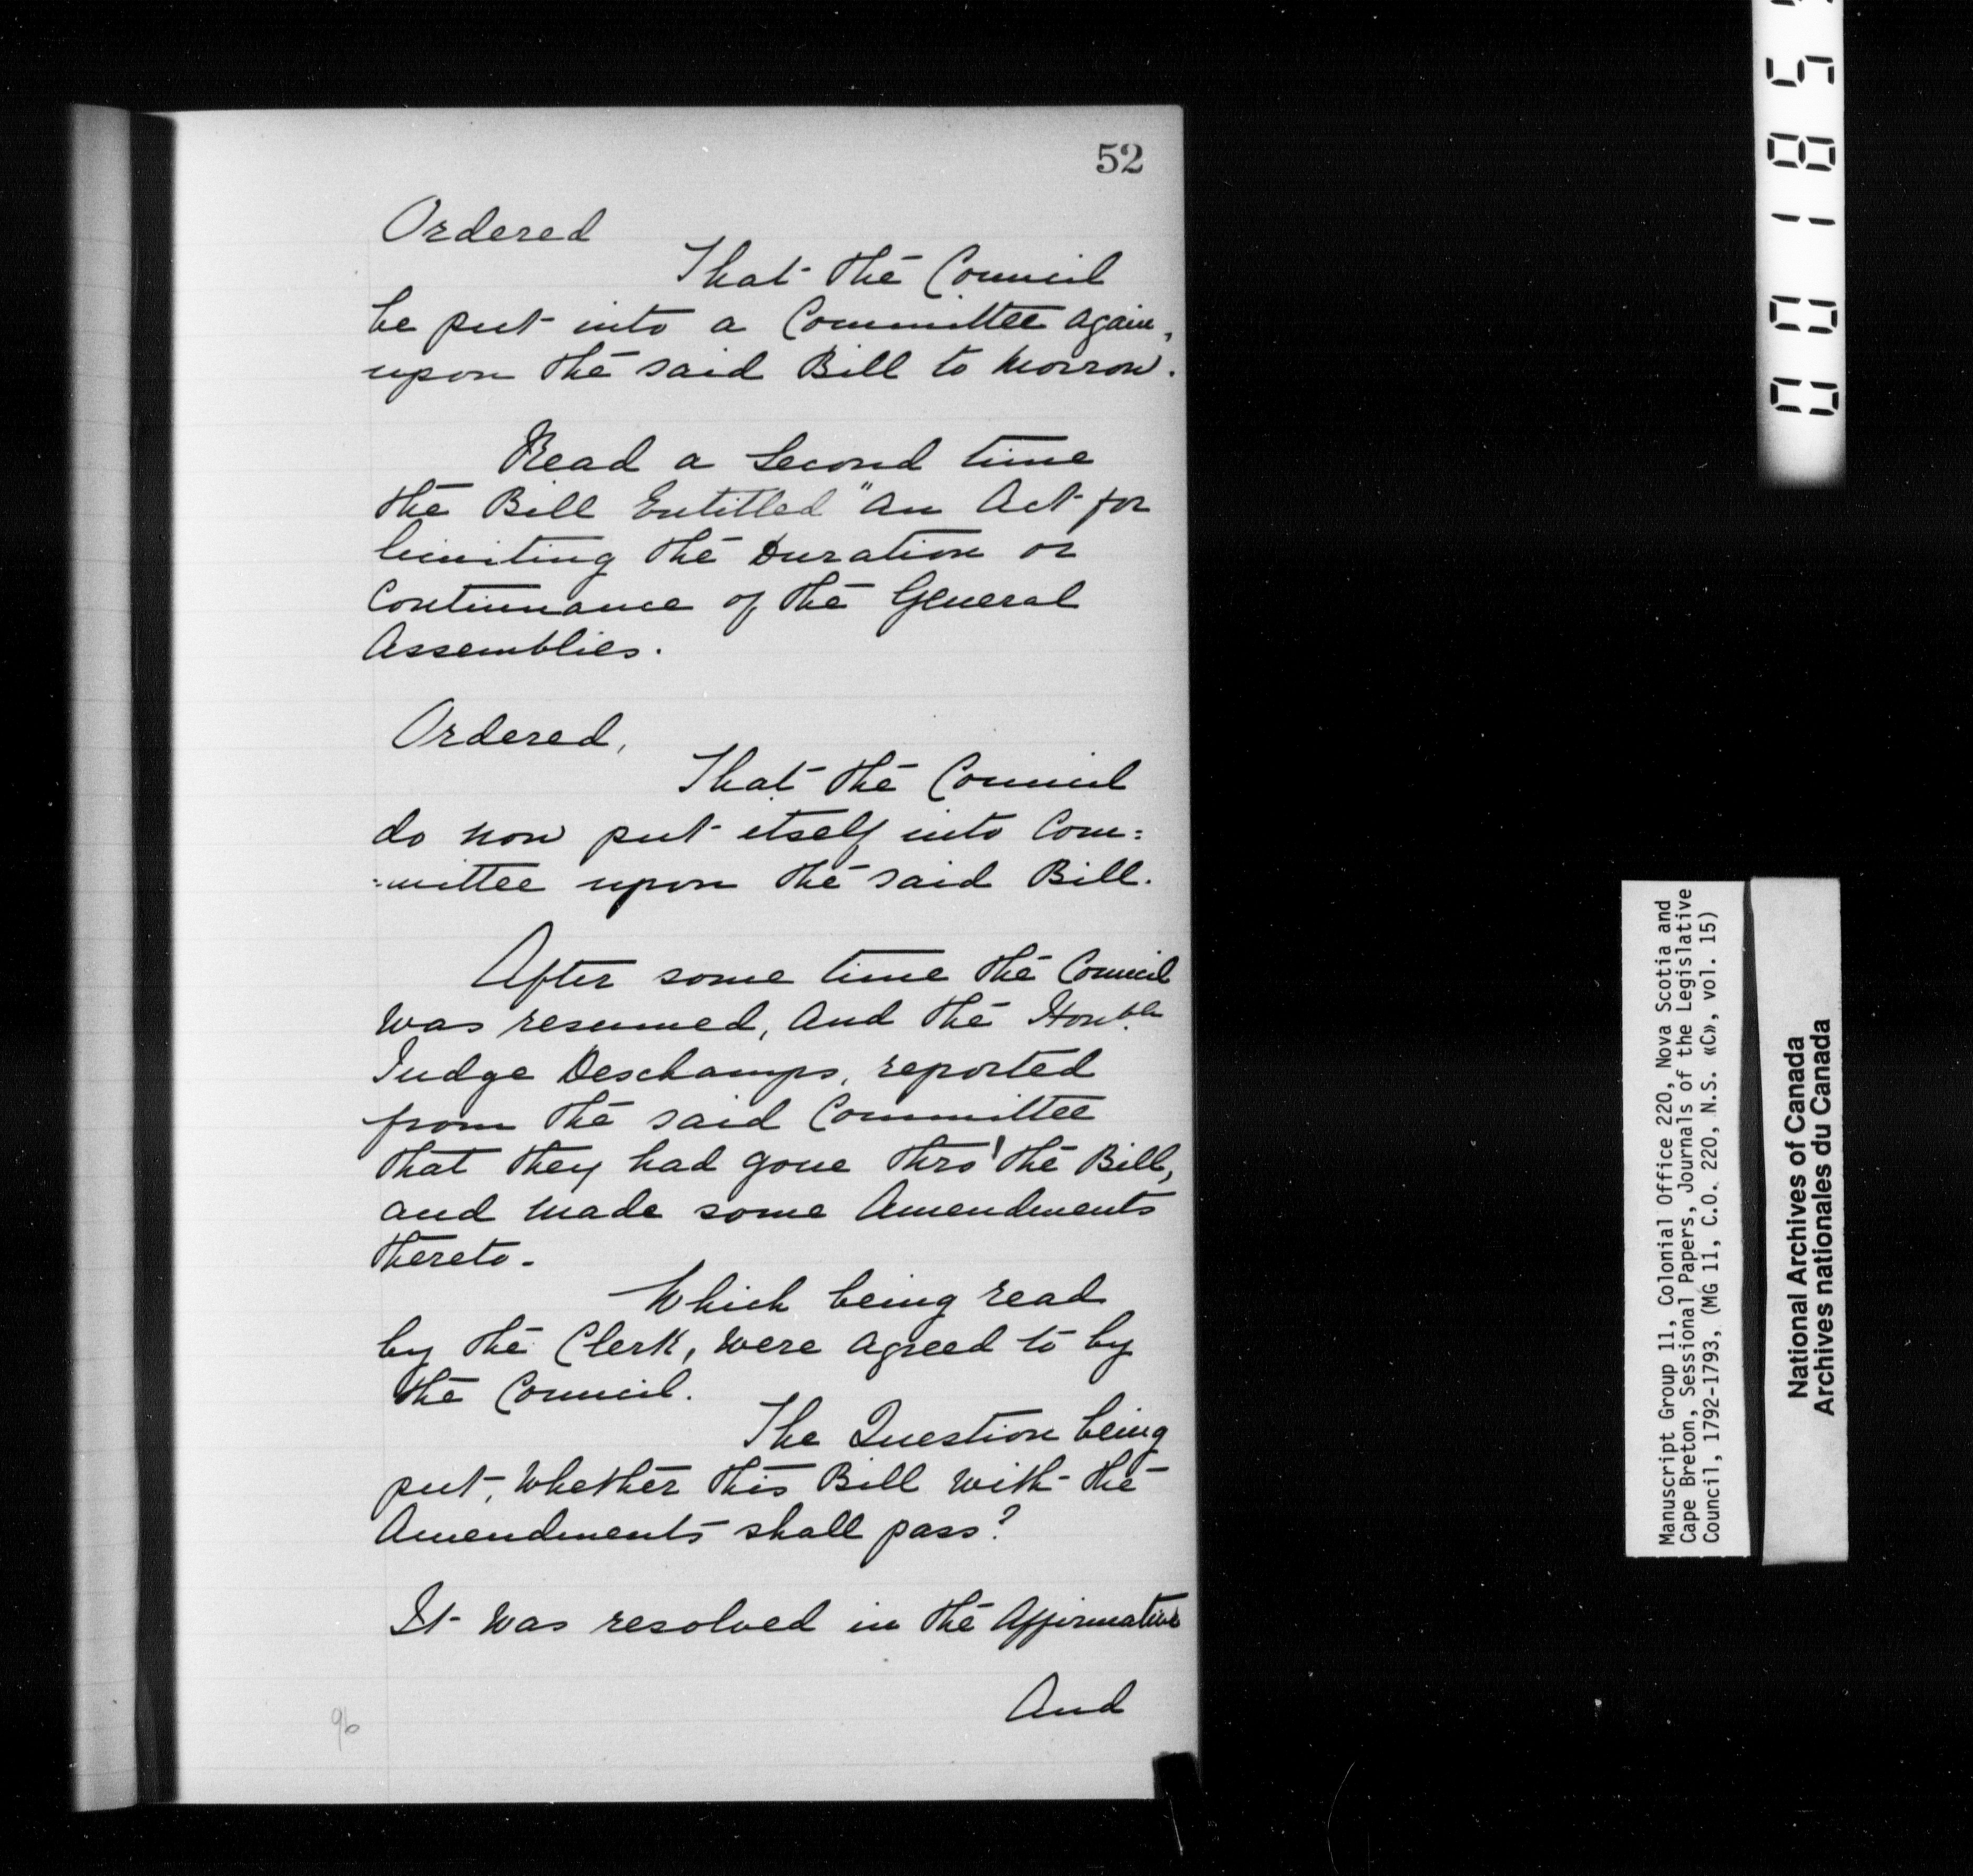 52
Ordered
That the Council
be put into a Committee again,
upon the said Bill to Morrow.
Read a Second time
the Bill Entitled "An Act for
limiting the Duration or
Continuance of the General
Assemblies.
Ordered,
That the Council
do now put itself into Com:
:mittee upon the said Bill.
After some time the Council
was resumed, and the Honble
Judge Deschamps, reported
from the said Committee
that they had gone thro' the Bill,
and made some Amendments
thereto.
Which being read
by the Clerk, were agreed to by
the Council.
The Question being
put, Whether this Bill with the
Amendments shall pass?
It was resolved in the Affirmative
And
96
Manuscript Group 11, Colonial Office 220, Nova Scotia and
Cape Breton, Sessional Papers, Journals of the Legislative
Council, 1792-1793, (MG 11, C.O. 220, N.S. «C», vol. 15)
National Archives of Canada
Archives nationales du Canada
00185